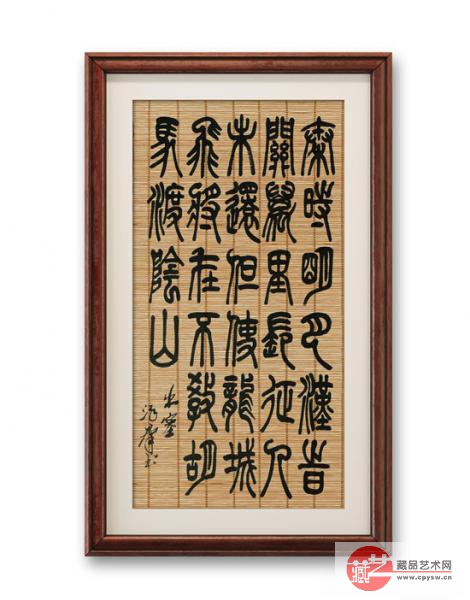 秦時明月漢旹
關萬里長征人
未還但使龍城
飛將在不教胡
馬渡陰山
出塞
藏艺
藏品艺术网
www.cpysw.cn